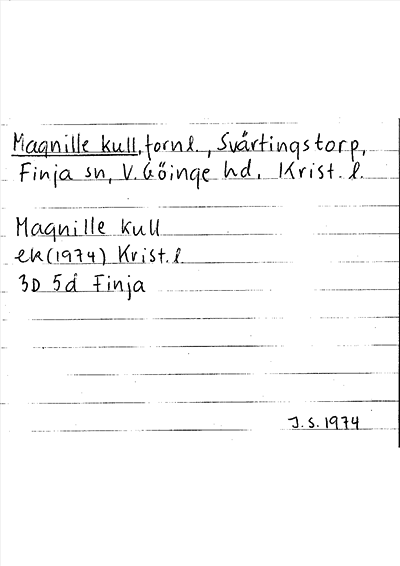 Magnille kull, fornl., Svärtingstorp,
Finja sn, V. Göinge hd, Krist. l.
Magnille kull
ek (1974) Krist. l.
3D 5d Finja
J.S. 1974